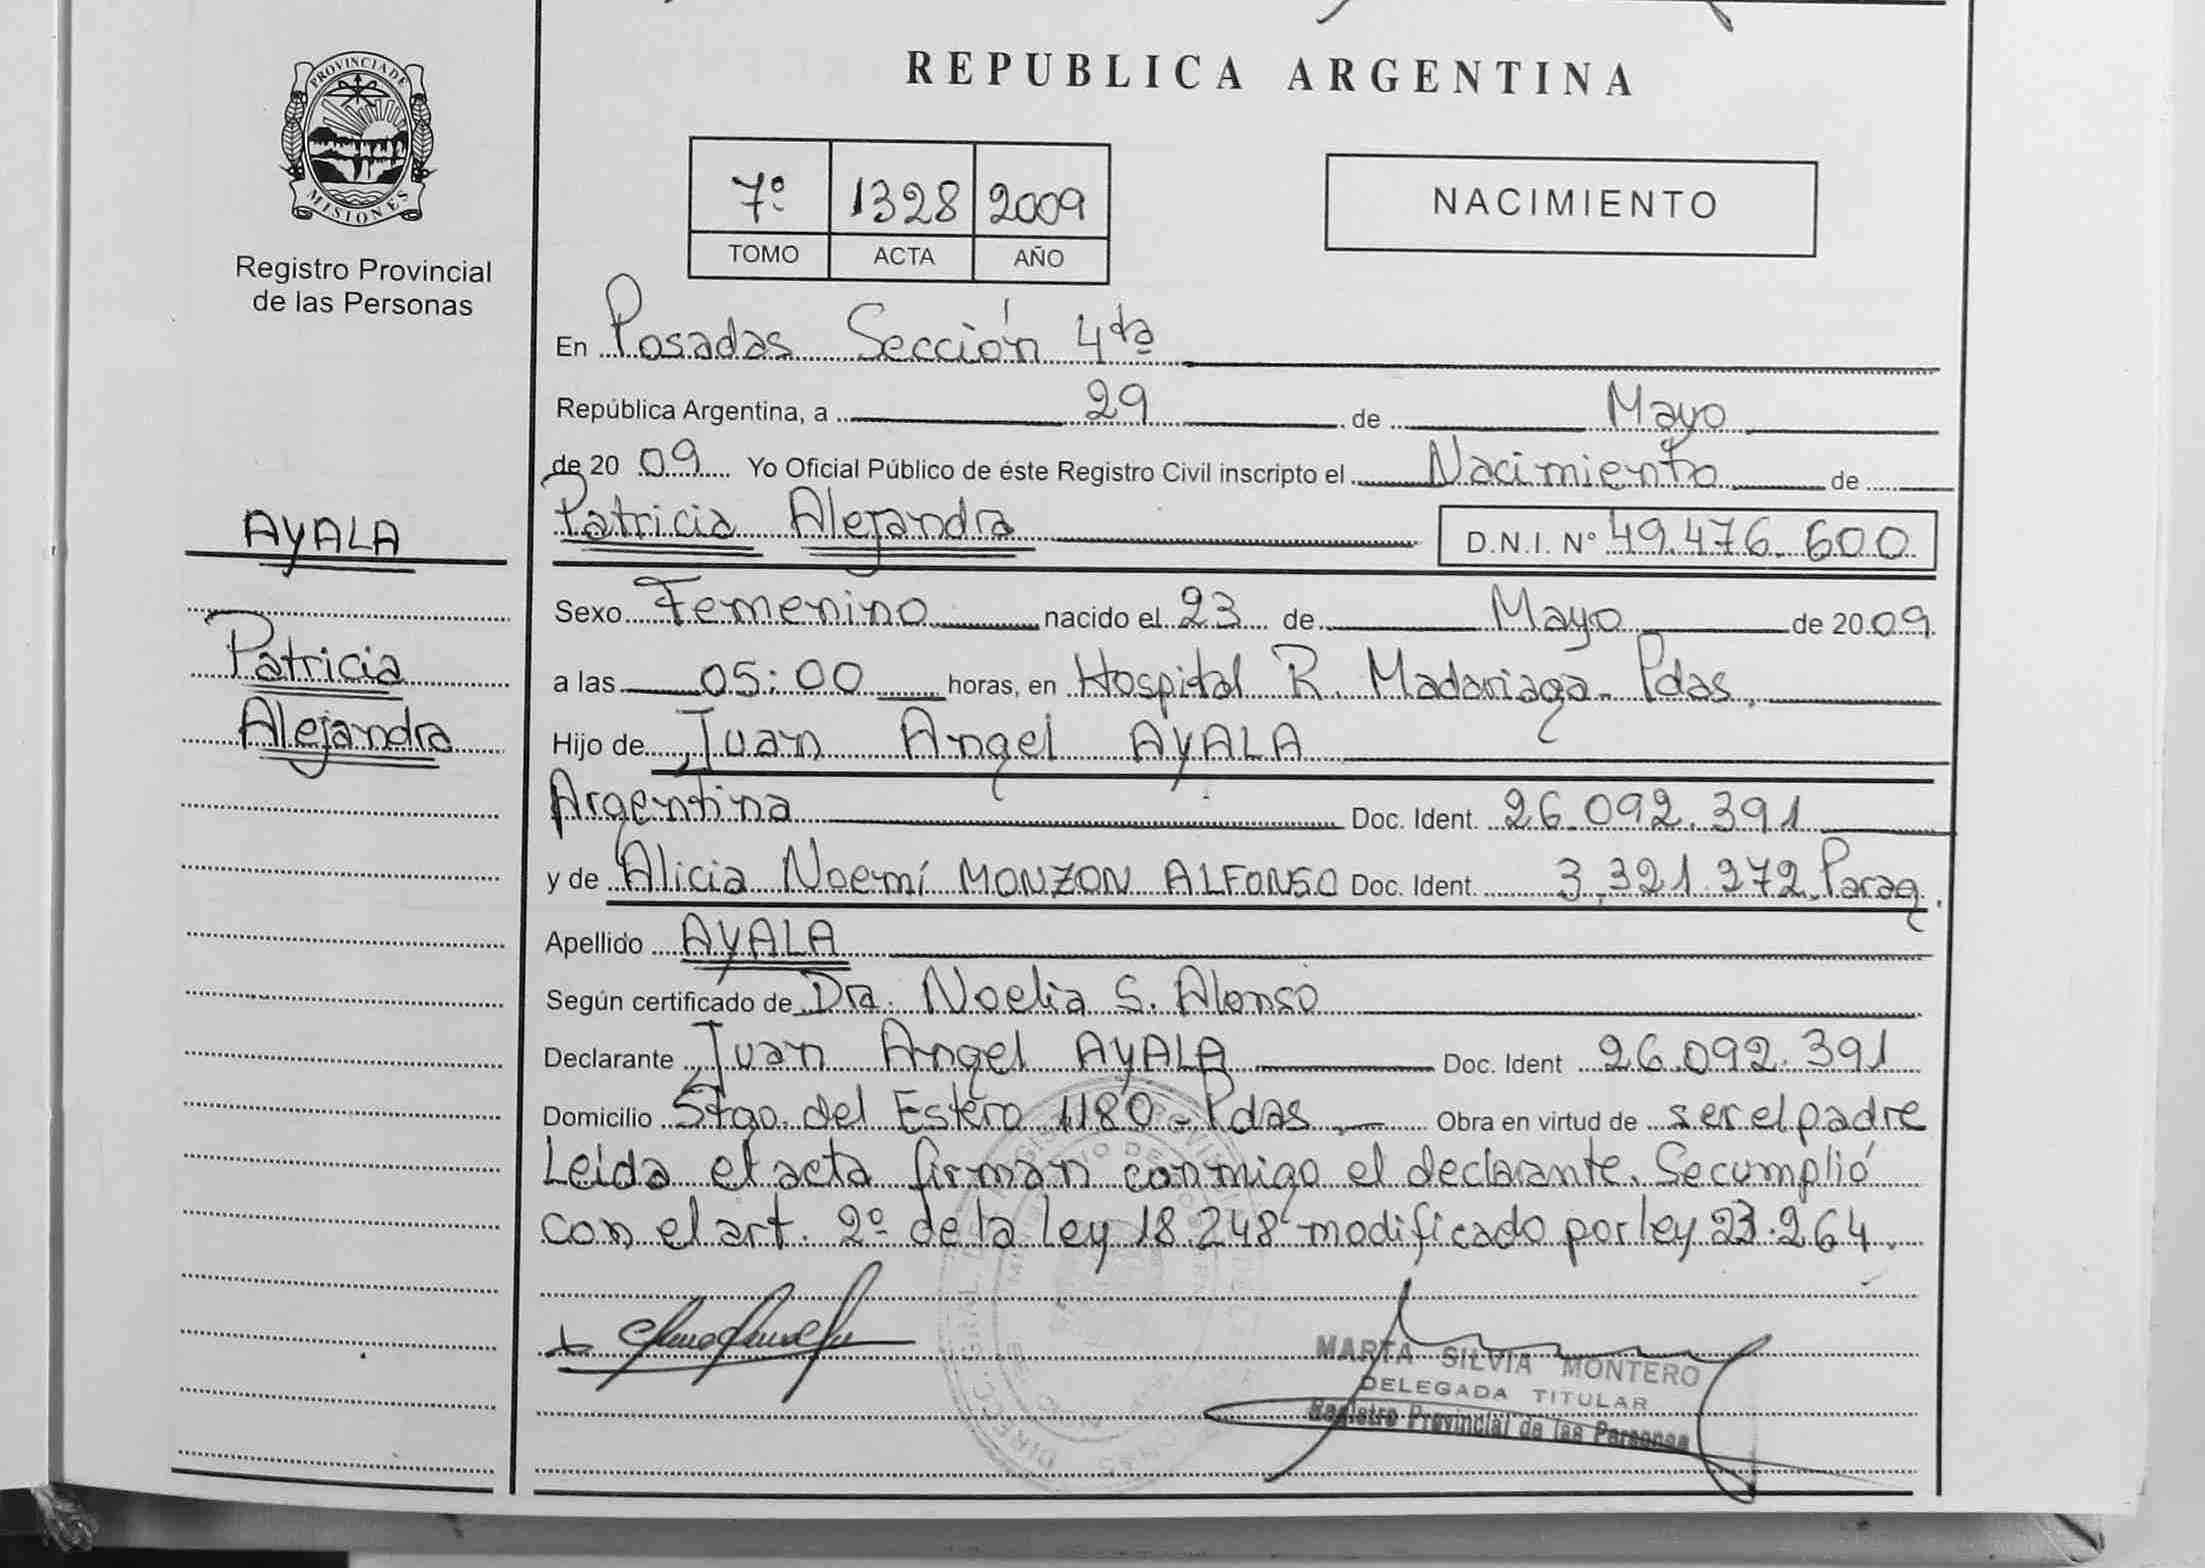 PROVINCIA DE
MISIONES
Registro Provincial
de las Personas
AYALA
Patricia
Alejandra
REPUBLICA ARGENTINA
7º 1328 2009
TOMO ACTA AÑO
NACIMIENTO
En Posadas Sección 4ta
República Argentina, a 29 de Mayo
de 20 09 Yo Oficial Público de éste Registro Civil inscripto el Nacimiento de
Patricia Alejandra D.N.I. Nº 49.476.600
Sexo Femenino nacido el 23 de Mayo de 2009
a las 05:00 horas, en Hospital R. Madariaga - Pdas.
Hijo de Juan Angel AYALA
Argentina Doc. Ident. 26.092.391
y de Alicia Noemí MONZON ALFONSO Doc. Ident. 3.321.272 Parag.
Apellido AYALA
Según certificado de Dra. Noelia S. Alonso
Declarante Juan Angel AYALA Doc. Ident 26.092.391
Domicilio Stgo. del Estero 1180 - Pdas. Obra en virtud de ser el padre
Leida el acta firman conmigo el declarante. Se cumplió
con el art. 2º de la ley 18.248 modificado por ley 23.264.
MARTA SILVIA MONTERO
DELEGADA TITULAR
Registro Provincial de las Personas